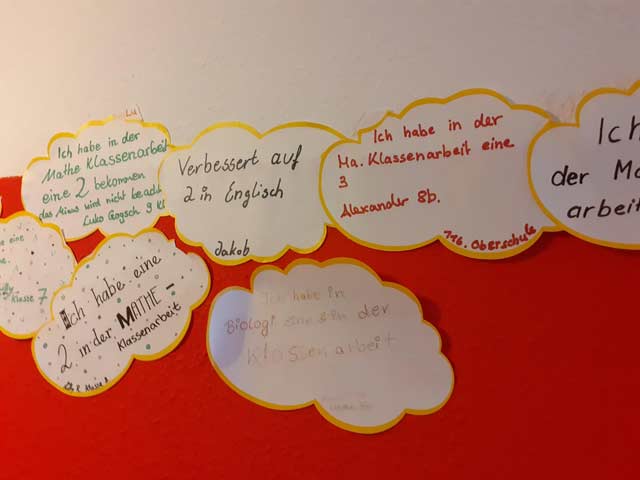 Lu
Ich habe in der
Mathe Klassenarbeit
eine 2 bekommen
das Minus wird nicht
Verbessert auf
2 in Englisch
Jakob
Ich habe in der
Ma. Klassenarbeit eine
3
Alexander 8b.
116. Oberschule
Ich
der Ma
arbeit
eine
Klasse 7
Ich habe eine
2 in der MATHE-
Klassenarbeit
Ich habe in
Biologi eine in der
Klassenarbeit